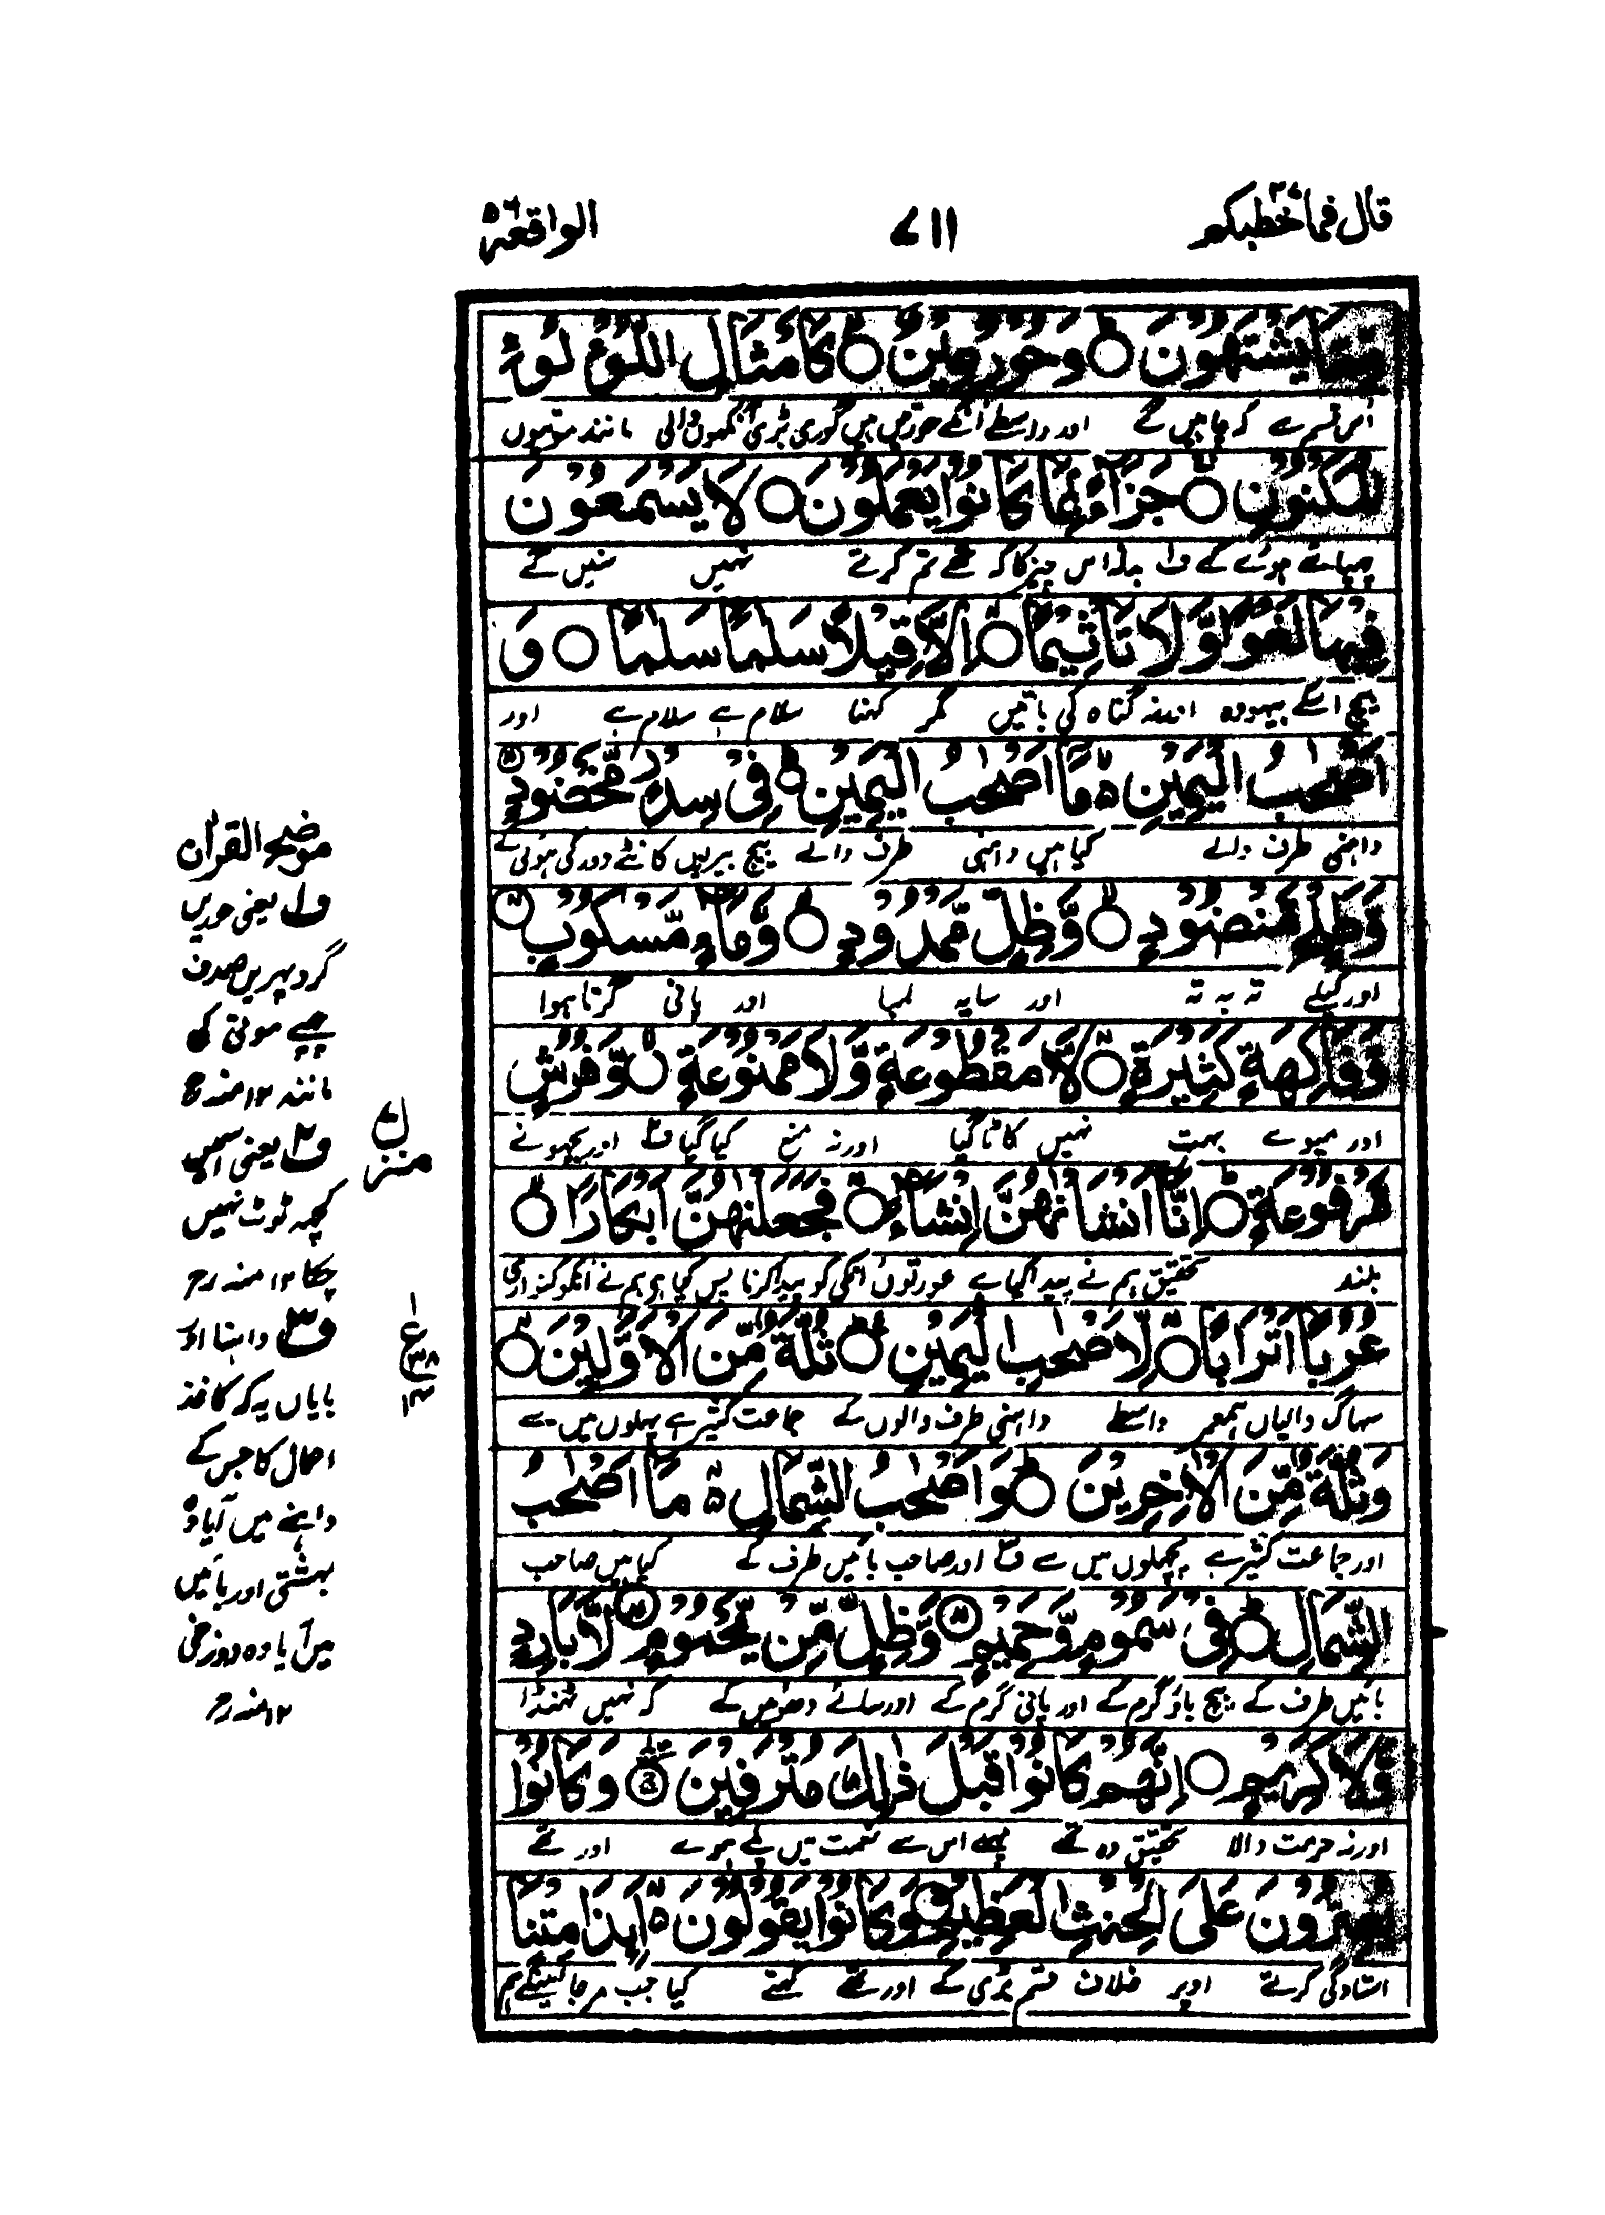 قال فما خطبكم ٢٧
٧١١
الواقعة ٥٦
مِّمَّا يَشْتَهُونَ ۝ وَحُورٌ عِينٌ ۝ كَأَمْثَالِ اللُّؤْلُؤِ
اس قسم سے کہ چاہیں گے اور واسطے انکے حوریں ہیں گوری بڑی آنکھوں والی مانند موتیوں
الْمَكْنُونِ ۝ جَزَاءً بِمَا كَانُوا يَعْمَلُونَ ۝ لَا يَسْمَعُونَ
چھپائے ہوئے کے ف۱ بدلہ اس چیز کا کہ تھے تم کرتے نہیں سنیں گے
فِيهَا لَغْوًا وَّلَا تَأْثِيمًا ۝ إِلَّا قِيلًا سَلٰمًا سَلٰمًا ۝ وَ
بیچ اسکے بیہودہ اور نہ گناہ کی باتیں مگر کہنا سلام ہے سلام ہے اور
أَصْحٰبُ الْيَمِينِ ۵ مَا أَصْحٰبُ الْيَمِينِ ۝ فِي سِدْرٍ مَّخْضُودٍ ۝
داہنی طرف والے کیا ہیں داہنی طرف والے بیچ بیریوں کانٹے دور کی ہوئی کے
وَّطَلْحٍ مَّنضُودٍ ۝ وَّظِلٍّ مَّمْدُودٍ ۝ وَّمَاءٍ مَّسْكُوبٍ ۝
اور کیلے تہ بہ تہ اور سایہ لمبا اور پانی گرتا ہوا
وَّفَاكِهَةٍ كَثِيرَةٍ ۝ لَّا مَقْطُوعَةٍ وَّلَا مَمْنُوعَةٍ ۝ وَّفُرُشٍ
اور میوے بہت نہیں کاٹا گیا اور نہ منع کیا گیا ف۲ اور بچھونے
مَّرْفُوعَةٍ ۝ إِنَّا أَنشَأْنٰهُنَّ إِنشَاءً ۝ فَجَعَلْنٰهُنَّ أَبْكَارًا ۝
بلند تحقیق ہم نے پیدا کیا ہے عورتوں انکی کو پیدا کرنا پس کیا ہے ہم نے انکو کنواری
عُرُبًا أَتْرَابًا ۝ لِّأَصْحٰبِ الْيَمِينِ ۝ ثُلَّةٌ مِّنَ الْأَوَّلِينَ ۝
سہاگ والیاں ہمعمر واسطے داہنی طرف والوں کے جماعت کثیر ہے پہلوں میں سے
وَثُلَّةٌ مِّنَ الْاٰخِرِينَ ۝ وَأَصْحٰبُ الشِّمَالِ ۵ مَا أَصْحٰبُ
اور جماعت کثیر ہے پچھلوں میں سے ف۳ اور صاحب بائیں طرف کے کیا ہیں صاحب
الشِّمَالِ ۝ فِي سَمُومٍ وَّحَمِيمٍ ۝ وَّظِلٍّ مِّن يَّحْمُومٍ ۝ لَّا بَارِدٍ
بائیں طرف کے بیچ باؤ گرم کے اور پانی گرم کے اور سائے دھوئیں کے کہ نہیں ٹھنڈا
وَّلَا كَرِيمٍ ۝ إِنَّهُمْ كَانُوا قَبْلَ ذٰلِكَ مُتْرَفِينَ ۝ وَكَانُوا
اور نہ حرمت والا تحقیق وہ تھے پہلے اس سے نعمت میں پلے ہوئے اور تھے
يُصِرُّونَ عَلَى الْحِنثِ الْعَظِيمِ ۝ وَكَانُوا يَقُولُونَ ۵ أَئِذَا مِتْنَا
استادگی کرتے اوپر خلاف قسم بڑی کے اور تھے کہتے کیا جب مرجائینگے ہم
موضح القرآن
ف۱ یعنی حوریں
گرد بہریں صدف
چھپے موتی کی
مانند ۱۲ منہ رح
ف۲ یعنی اسمیں
کچھ ٹوٹ نہیں
چکا ۱۲ منہ رح
ف۳ داہنا اور
بایاں یہ کہ کاغذ
اعمال کا جس کے
داہنے میں آیا وہ
بہشتی اور بائیں
میں آیا وہ دوزخی
۱۲ منہ رح
منزل ٧
ع
١
٣٨
١٤